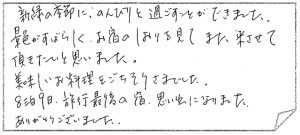 新緑の季節に、のんびりと過ごすことができました。
景色がすばらしく、お宿のしおりを見てまた来させて
頂きたいと思いました。
美味しいお料理をごちそうさまでした。
8泊9日、旅行最後の宿、思い出になりました。
ありがとうございました。